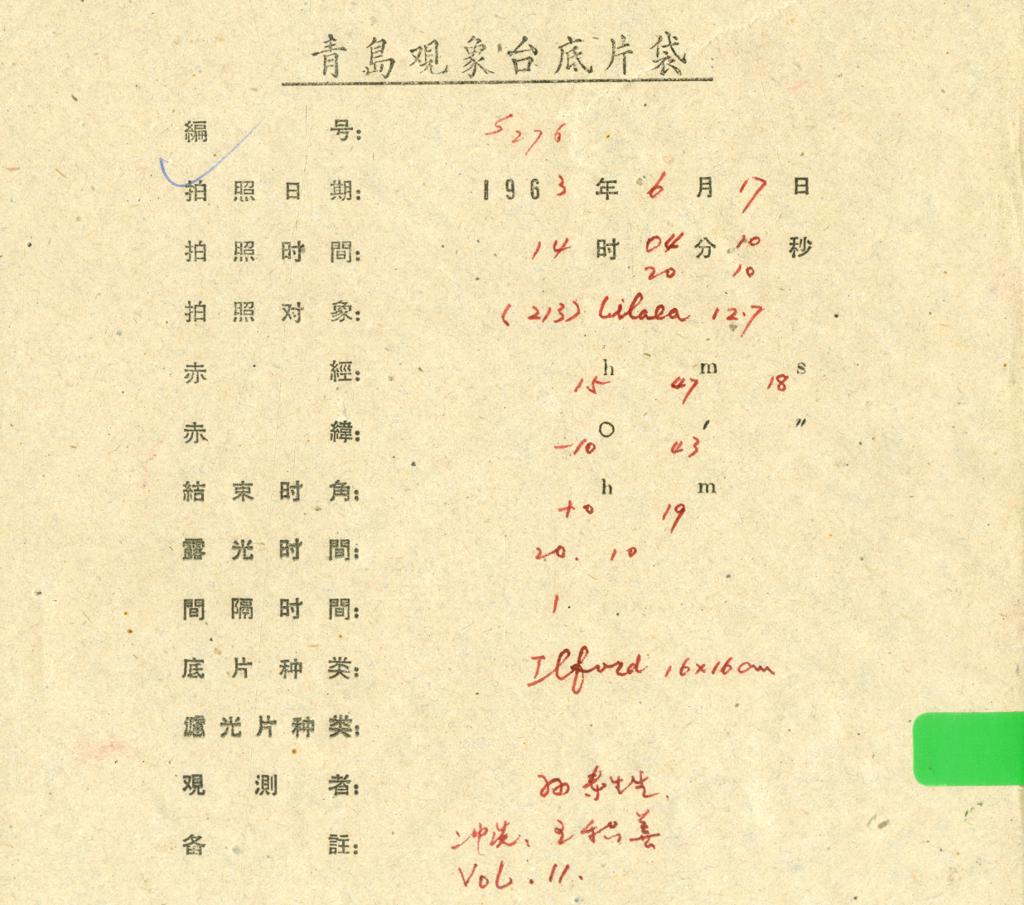 青島观象台底片袋
編号: 5276
拍照日期: 1963年6月17日
拍照时間: 14时04分10秒
20 10
拍照对象: (213) Lilaea 12.7
赤經: 15h 47m 18s
赤緯: -10° 43′ ″
結束时角: +0h 19m
露光时間: 20. 10
間隔时間: 1
底片种类: Ilford 16x16cm
濾光片种类:
观測者: 孙
备註: 冲洗. 王 善
Vol. 11.